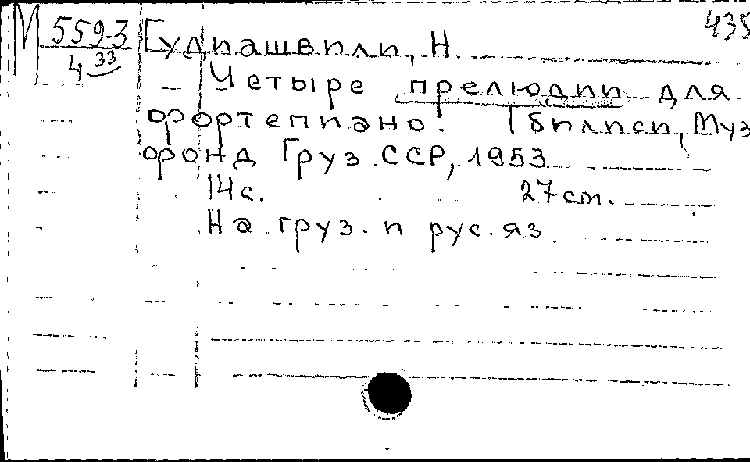 М 559-3 Гудиашвили, Н. 435
4 33
Четыре прелюдии для
фортепиано. Тбилиси, Муз
фонд Груз. ССР, 1953
14с. 27 cm.
На груз. и рус. яз.